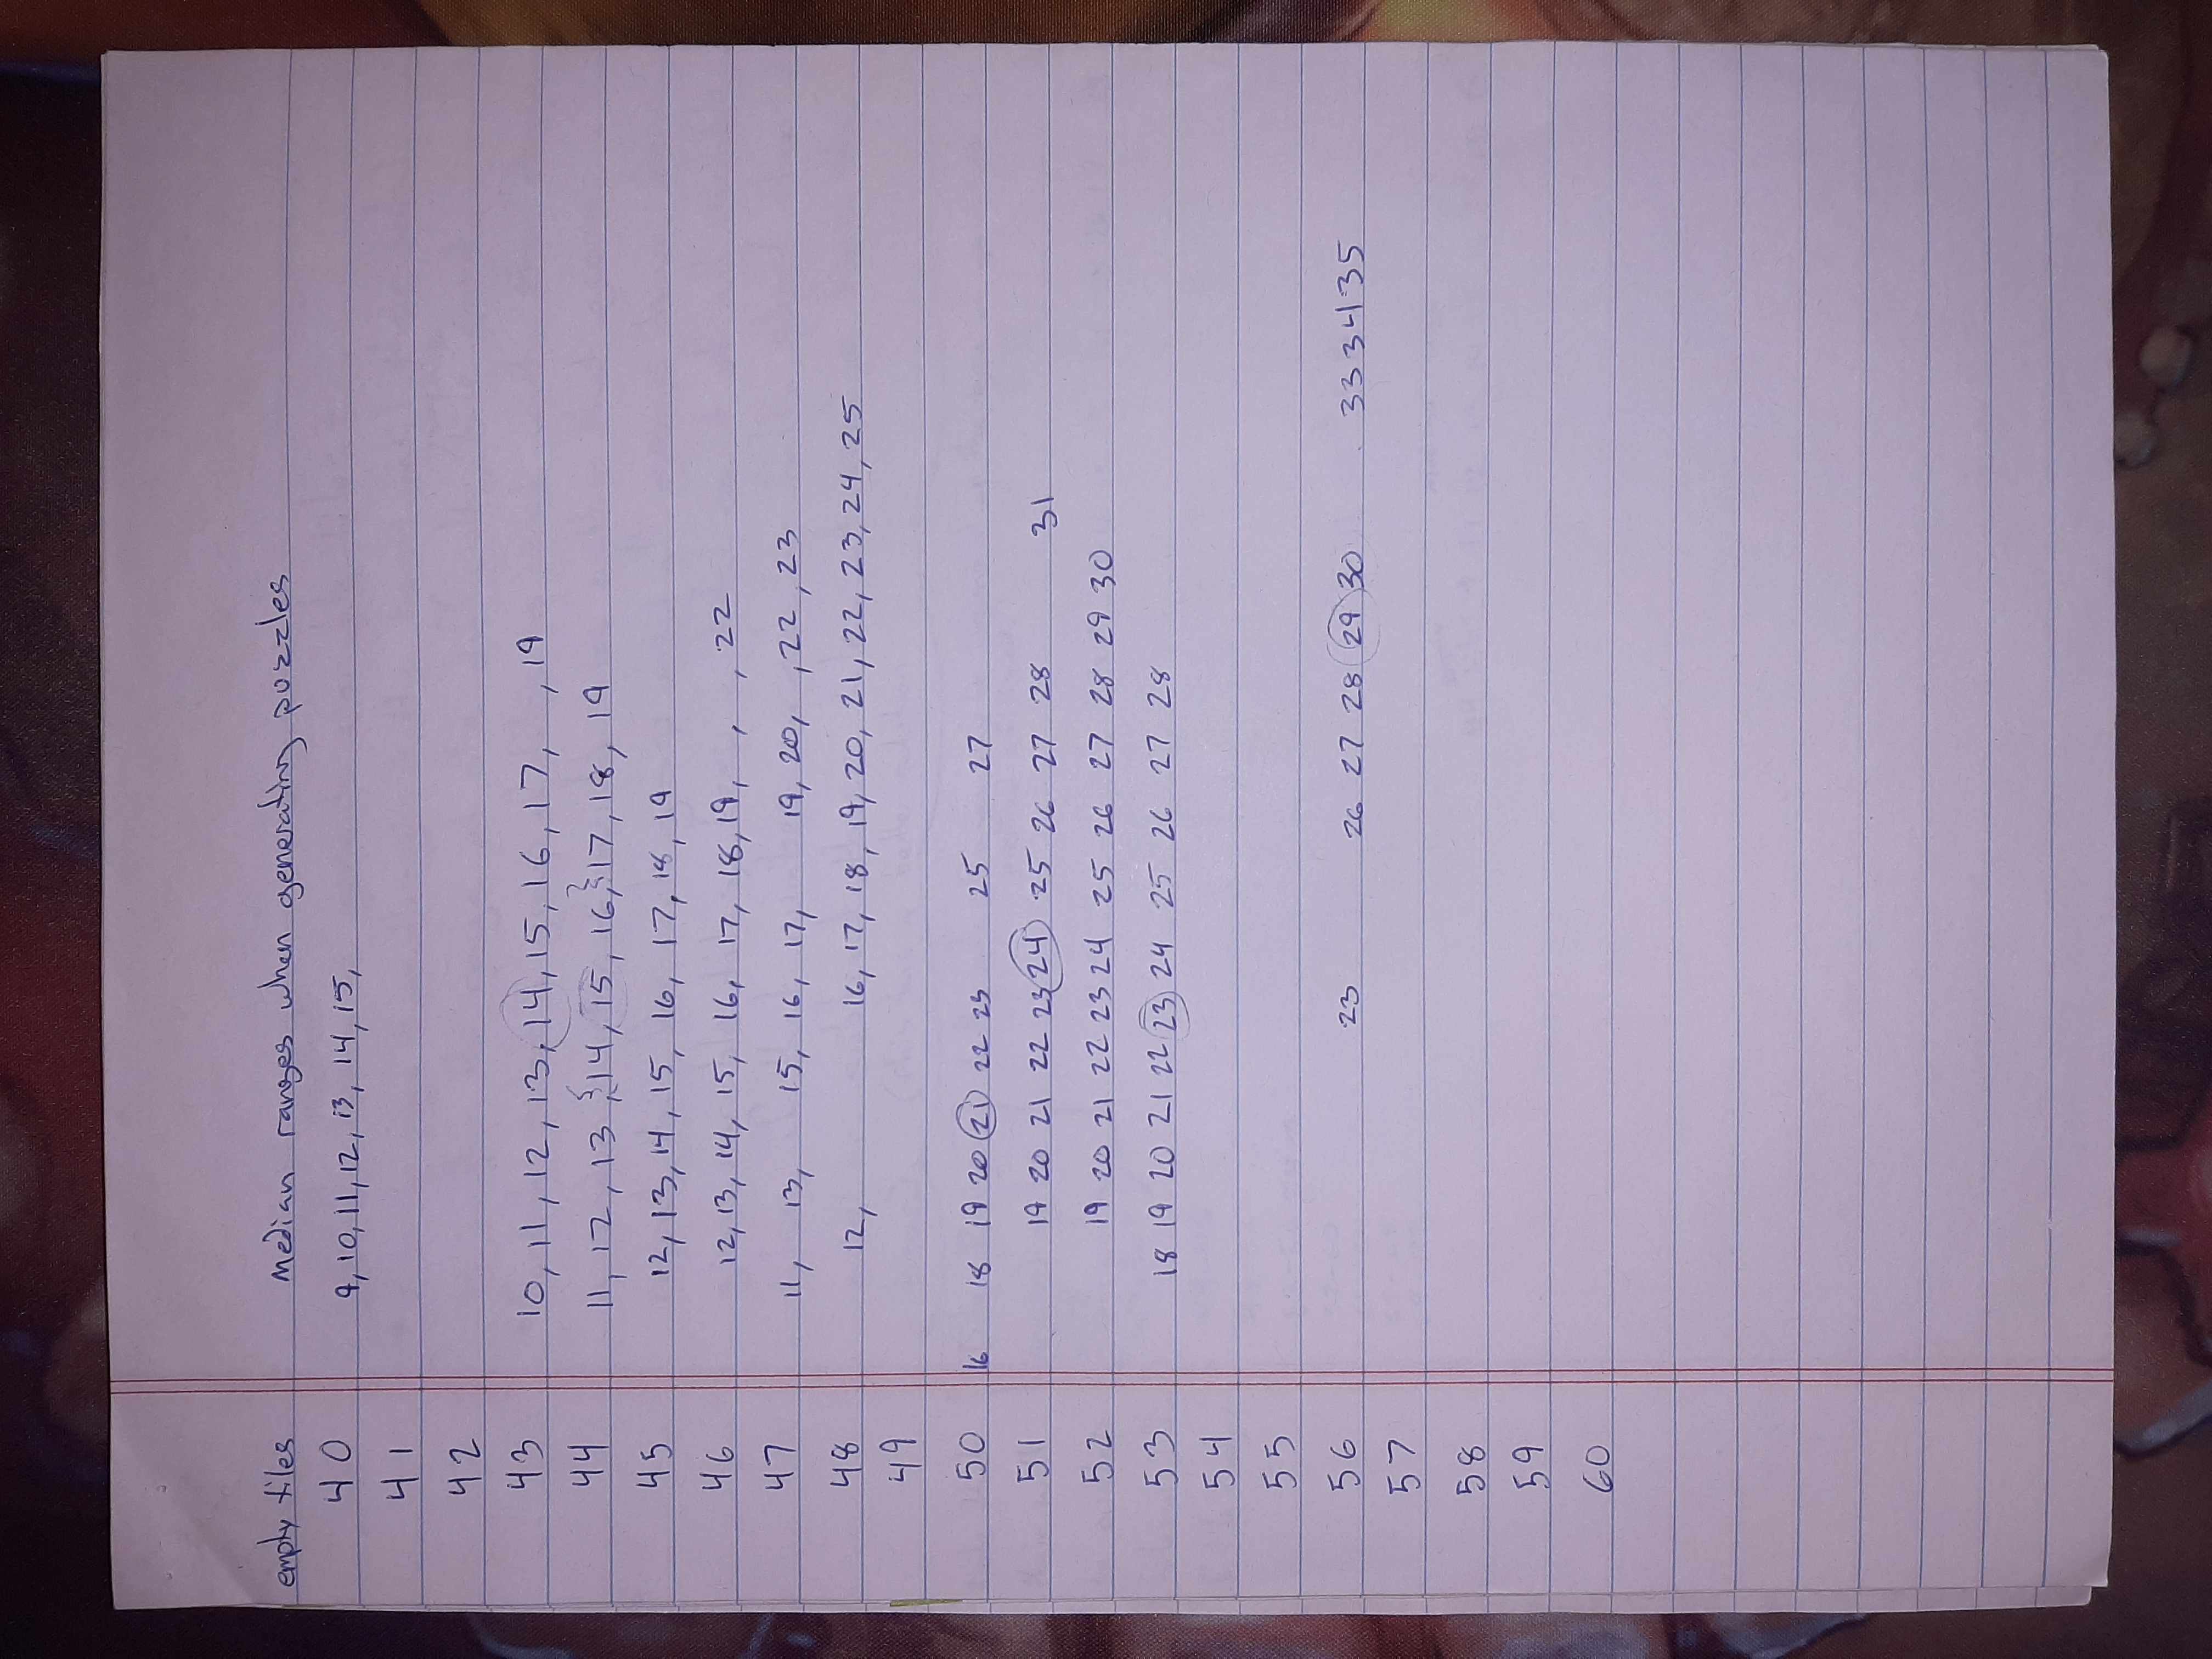 empty tiles median ranges when generating puzzles
40 9, 10, 11, 12, 13, 14, 15,
41
42
43 10, 11, 12, 13, 14, 15, 16, 17, , 19
44 11, 12, 13, {14, 15, 16,} 17, 18, 19
45 12, 13, 14, 15, 16, 17, 18, 19
46 12, 13, 14, 15, 16, 17, 18, 19, , , 22
47 11, 13, 15, 16, 17, 19, 20, , 22, 23
48 12, 16, 17, 18, 19, 20, 21, 22, 23, 24, 25
49
50 16 18 19 20 21 22 23 25 27
51 19 20 21 22 23 24 25 26 27 28 31
52 19 20 21 22 23 24 25 26 27 28 29 30
53 18 19 20 21 22 23 24 25 26 27 28
54
55
56 23 26 27 28 29 30 33 34 35
57
58
59
60